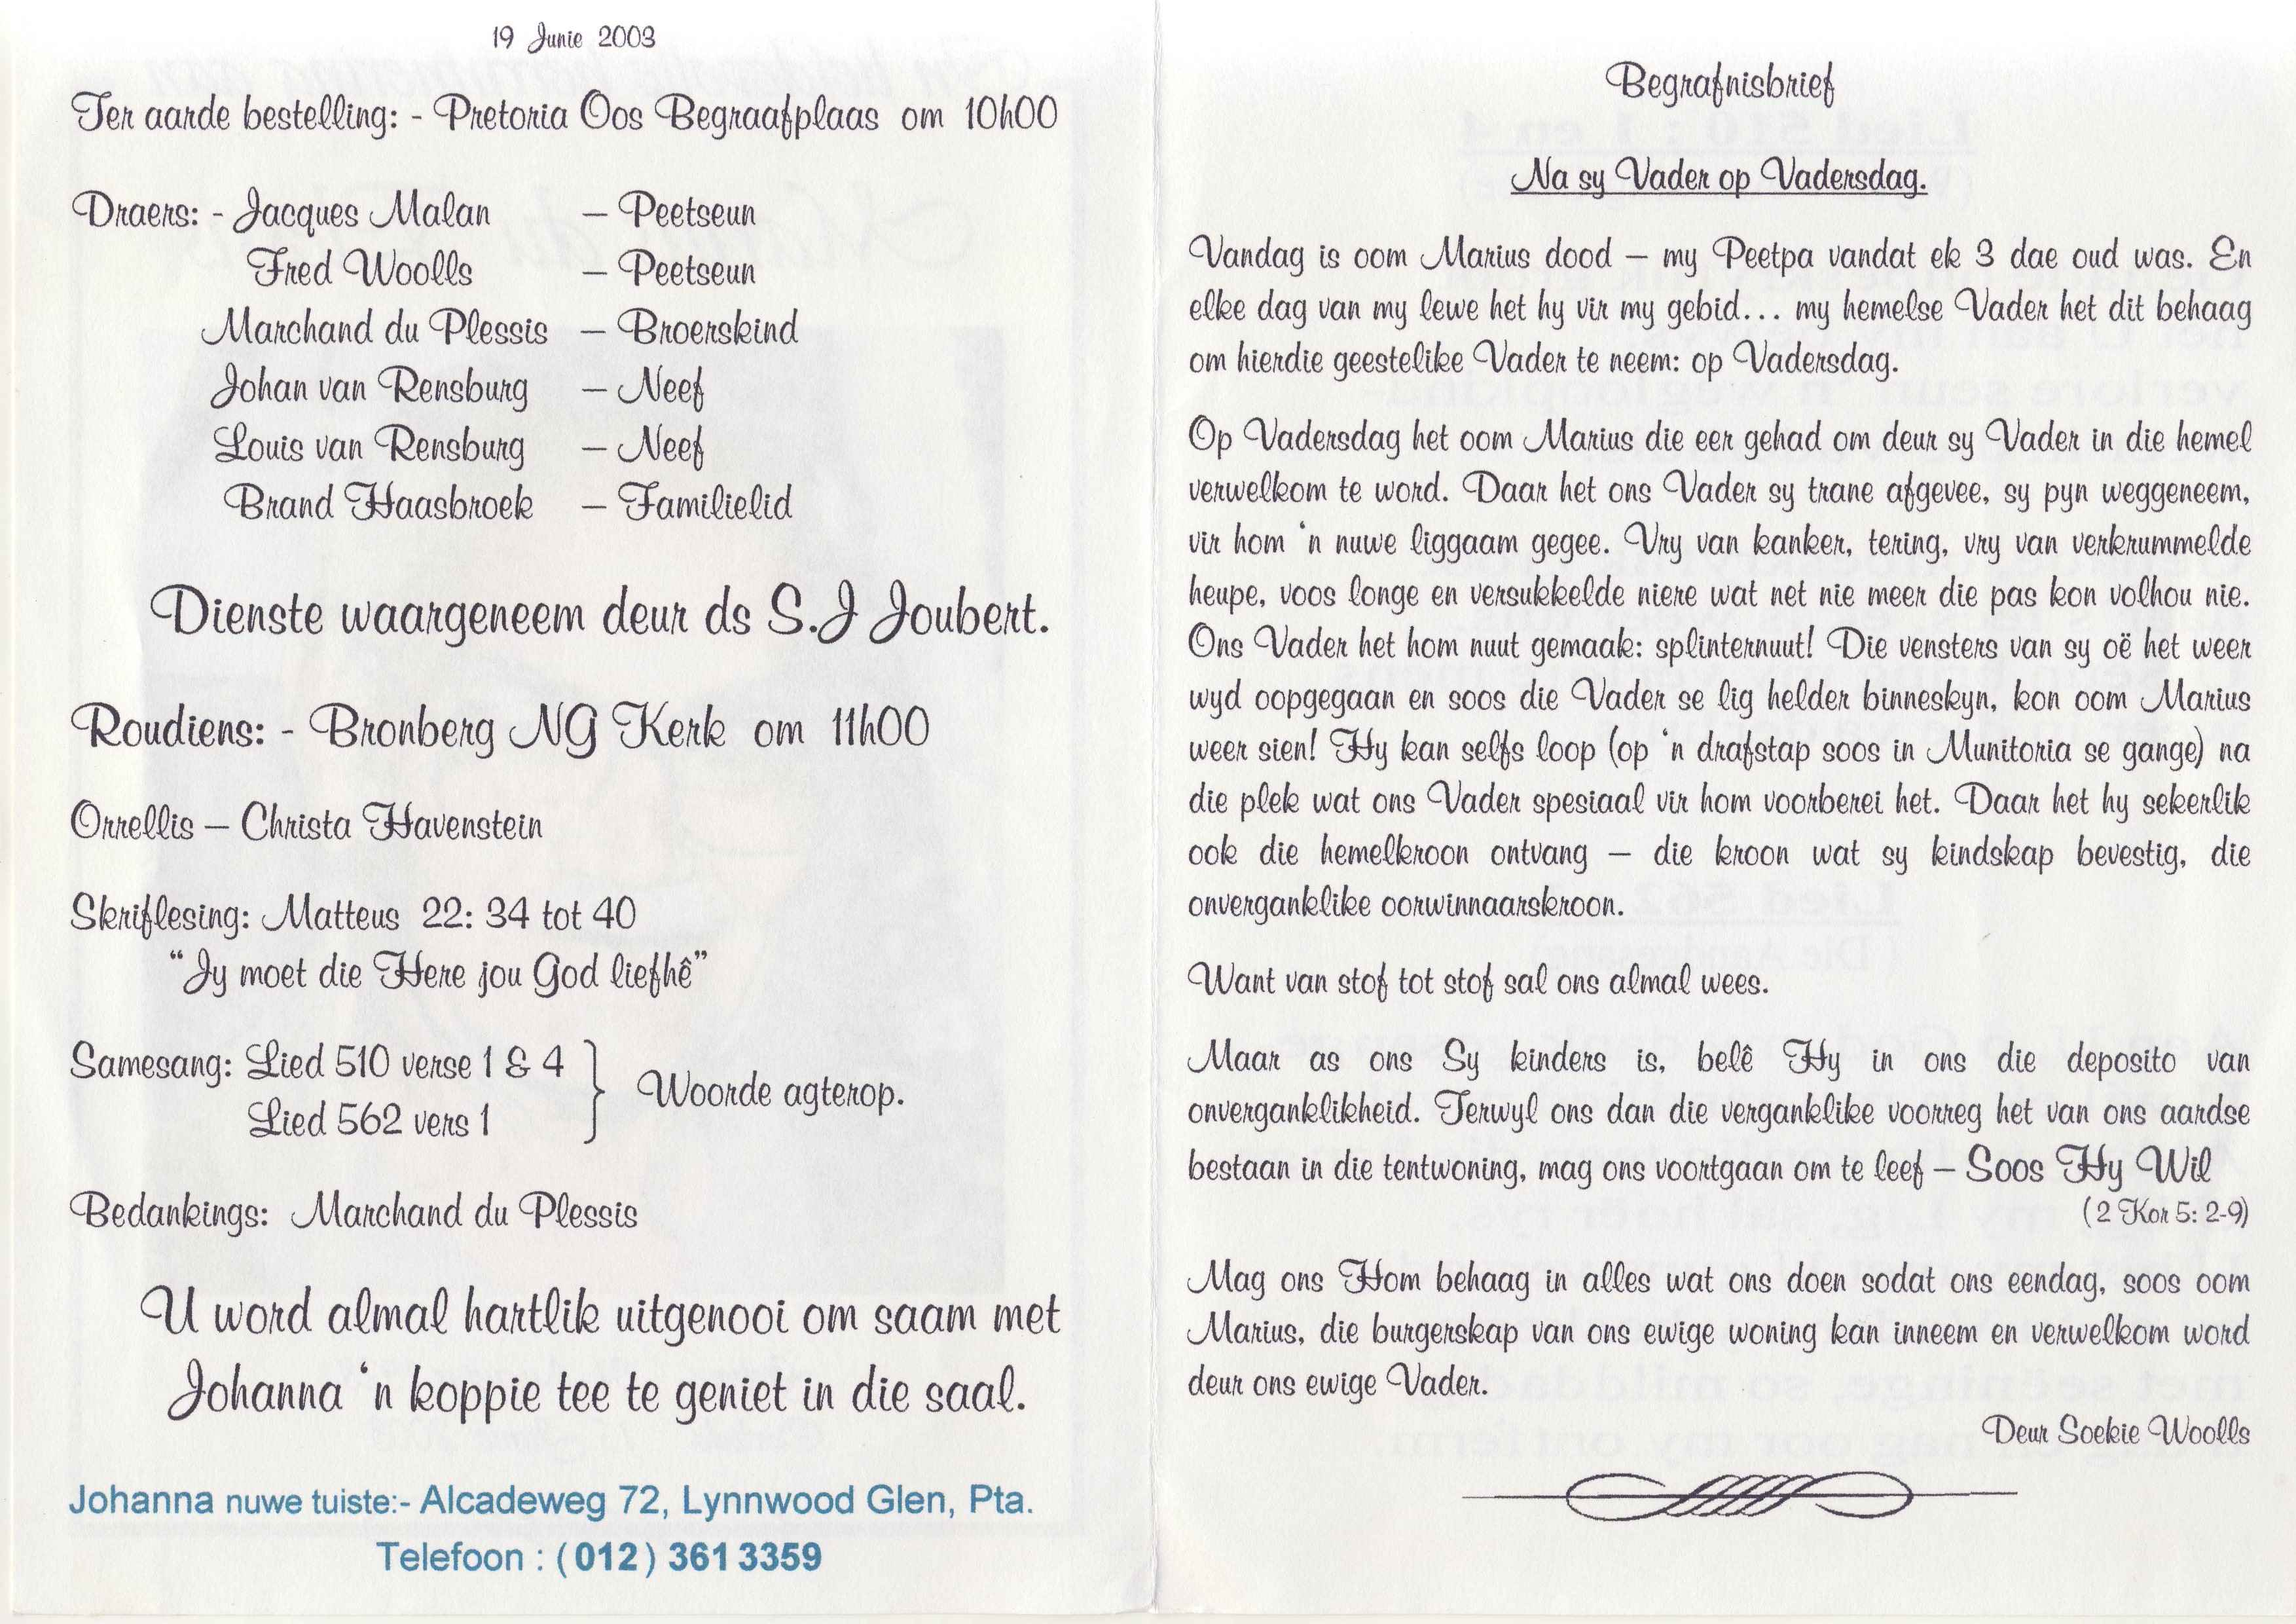 19 Junie 2003
Ter aarde bestelling: - Pretoria Oos Begraafplaas om 10h00
Draers: - Jacques Malan – Peetseun
Fred Woolls – Peetseun
Marchand du Plessis – Broerskind
Johan van Rensburg – Neef
Louis van Rensburg – Neef
Brand Haasbroek – Familielid
Dienste waargeneem deur ds S.J Joubert.
Roudiens: - Bronberg NG Kerk om 11h00
Orrellis – Christa Havenstein
Skriflesing: Matteus 22: 34 tot 40
“Jy moet die Here jou God liefhê”
Samesang: Lied 510 verse 1 & 4
Lied 562 vers 1
} Woorde agterop.
Bedankings: Marchand du Plessis
U word almal hartlik uitgenooi om saam met
Johanna ‘n koppie tee te geniet in die saal.
Johanna nuwe tuiste:- Alcadeweg 72, Lynnwood Glen, Pta.
Telefoon : (012) 361 3359
Begrafnisbrief
Na sy Vader op Vadersdag.
Vandag is oom Marius dood – my Peetpa vandat ek 3 dae oud was. En
elke dag van my lewe het hy vir my gebid… my hemelse Vader het dit behaag
om hierdie geestelike Vader te neem: op Vadersdag.
Op Vadersdag het oom Marius die eer gehad om deur sy Vader in die hemel
verwelkom te word. Daar het ons Vader sy trane afgevee, sy pyn weggeneem,
vir hom ‘n nuwe liggaam gegee. Vry van kanker, tering, vry van verkrummelde
heupe, voos longe en versukkelde niere wat net nie meer die pas kon volhou nie.
Ons Vader het hom nuut gemaak: splinternuut! Die vensters van sy oë het weer
wyd oopgegaan en soos die Vader se lig helder binneskyn, kon oom Marius
weer sien! Hy kan selfs loop (op ‘n drafstap soos in Munitoria se gange) na
die plek wat ons Vader spesiaal vir hom voorberei het. Daar het hy sekerlik
ook die hemelkroon ontvang – die kroon wat sy kindskap bevestig, die
onverganklike oorwinnaarskroon.
Want van stof tot stof sal ons almal wees.
Maar as ons Sy kinders is, belê Hy in ons die deposito van
onverganklikheid. Terwyl ons dan die verganklike voorreg het van ons aardse
bestaan in die tentwoning, mag ons voortgaan om te leef – Soos Hy Wil
(2 Kor 5: 2-9)
Mag ons Hom behaag in alles wat ons doen sodat ons eendag, soos oom
Marius, die burgerskap van ons ewige woning kan inneem en verwelkom word
deur ons ewige Vader.
Deur Soekie Woolls